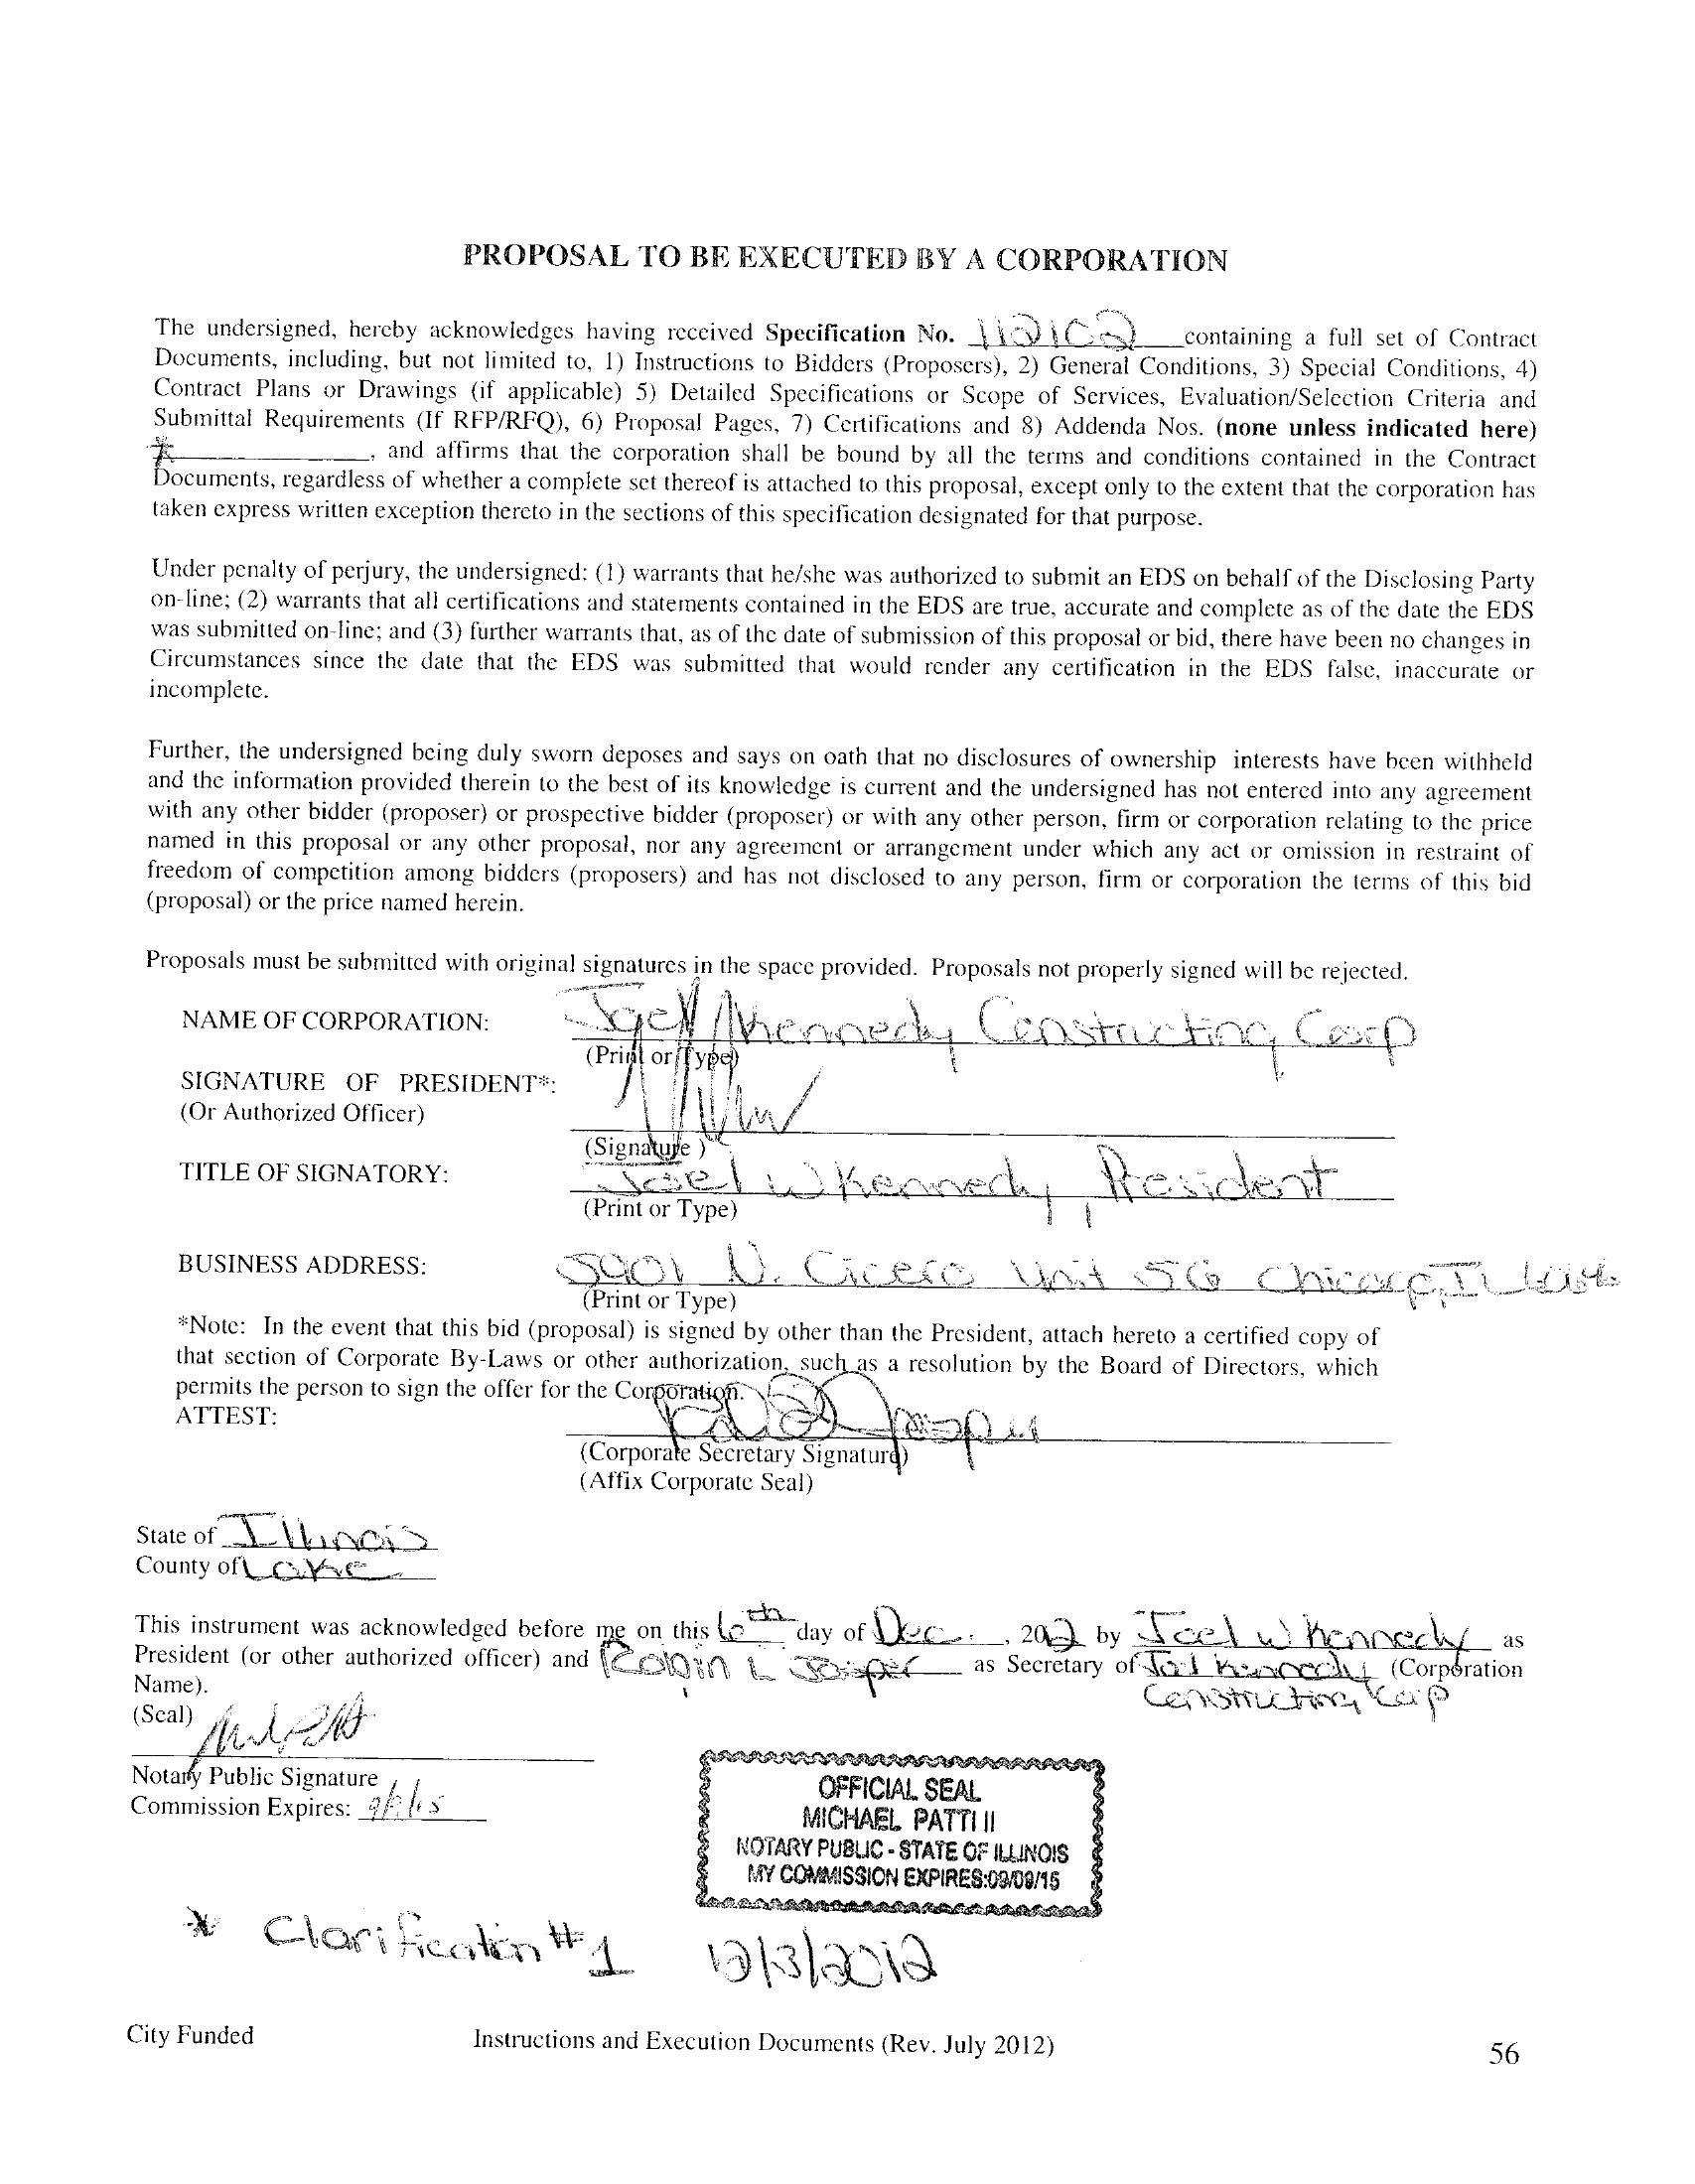 PROPOSAL TO BE EXECUTED BY A CORPORATION
The undersigned, hereby acknowledges having received Specification No. 112102 containing a full set of Contract
Documents, including, but not limited to, 1) Instructions to Bidders (Proposers), 2) General Conditions, 3) Special Conditions, 4)
Contract Plans or Drawings (if applicable) 5) Detailed Specifications or Scope of Services, Evaluation/Selection Criteria and
Submittal Requirements (If RFP/RFQ), 6) Proposal Pages, 7) Certifications and 8) Addenda Nos. (none unless indicated here)
* , and affirms that the corporation shall be bound by all the terms and conditions contained in the Contract
Documents, regardless of whether a complete set thereof is attached to this proposal, except only to the extent that the corporation has
taken express written exception thereto in the sections of this specification designated for that purpose.
Under penalty of perjury, the undersigned: (1) warrants that he/she was authorized to submit an EDS on behalf of the Disclosing Party
on-line; (2) warrants that all certifications and statements contained in the EDS are true, accurate and complete as of the date the EDS
was submitted on-line; and (3) further warrants that, as of the date of submission of this proposal or bid, there have been no changes in
Circumstances since the date that the EDS was submitted that would render any certification in the EDS false, inaccurate or
incomplete.
Further, the undersigned being duly sworn deposes and says on oath that no disclosures of ownership interests have been withheld
and the information provided therein to the best of its knowledge is current and the undersigned has not entered into any agreement
with any other bidder (proposer) or prospective bidder (proposer) or with any other person, firm or corporation relating to the price
named in this proposal or any other proposal, nor any agreement or arrangement under which any act or omission in restraint of
freedom of competition among bidders (proposers) and has not disclosed to any person, firm or corporation the terms of this bid
(proposal) or the price named herein.
Proposals must be submitted with original signatures in the space provided. Proposals not properly signed will be rejected.
NAME OF CORPORATION: Joel Kennedy Constructing Corp
(Print or Type)
SIGNATURE OF PRESIDENT*:
(Or Authorized Officer)
(Signature )
TITLE OF SIGNATORY: Joel W Kennedy, President
(Print or Type)
BUSINESS ADDRESS: 5901 N. Cicero Unit 5G Chicago, IL
(Print or Type)
*Note: In the event that this bid (proposal) is signed by other than the President, attach hereto a certified copy of
that section of Corporate By-Laws or other authorization, such as a resolution by the Board of Directors, which
permits the person to sign the offer for the Corporation.
ATTEST:
(Corporate Secretary Signature)
(Affix Corporate Seal)
State of Illinois
County of Lake
This instrument was acknowledged before me on this 6th day of Dec. , 2012 by Joel W Kennedy as
President (or other authorized officer) and Robin L Jasper as Secretary of Joel Kennedy (Corporation
Name). Constructing Corp
(Seal)
Notary Public Signature
Commission Expires: 9/9/15
OFFICIAL SEAL
MICHAEL PATTI II
NOTARY PUBLIC - STATE OF ILLINOIS
MY COMMISSION EXPIRES:09/09/15
* Clarification #1 12/3/2012
City Funded Instructions and Execution Documents (Rev. July 2012) 56